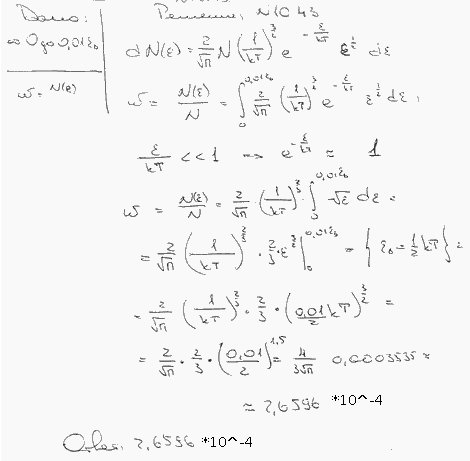 Дано: Решение. N10.43
от 0 до 0,01ε₀
w = N(ε)
dN(ε) = 2/√π N (1/kT)^(3/2) e^(-ε/kT) ε^(1/2) dε
w = N(ε)/N = ∫₀^(0,01ε₀) 2/√π (1/kT)^(3/2) e^(-ε/kT) ε^(1/2) dε,
ε/kT << 1 => e^(-ε/kT) ≈ 1
w = N(ε)/N = 2/√π · (1/kT)^(3/2) · ∫₀^(0,01ε₀) √ε dε =
= 2/√π (1/kT)^(3/2) · 2/3 · ε^(3/2) |₀^(0,01ε₀) = { ε₀ = 1/2 kT } =
= 2/√π (1/kT)^(3/2) · 2/3 · (0,01/2 kT)^(3/2) =
= 2/√π · 2/3 · (0,01/2)^(1,5) = 4/(3√π) 0,0003535 ≈
≈ 2,6596 *10^-4
Ответ: 2,6596 *10^-4